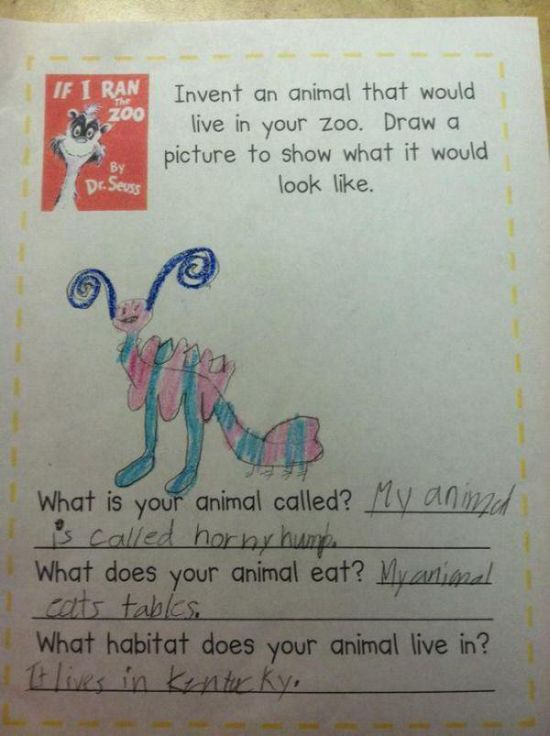 IF I RAN
The
ZOO
By
Dr. Seuss
Invent an animal that would
live in your zoo. Draw a
picture to show what it would
look like.
What is your animal called? My animal
is called horny hump.
What does your animal eat? My animal
eats tables.
What habitat does your animal live in?
It lives in Kentucky.